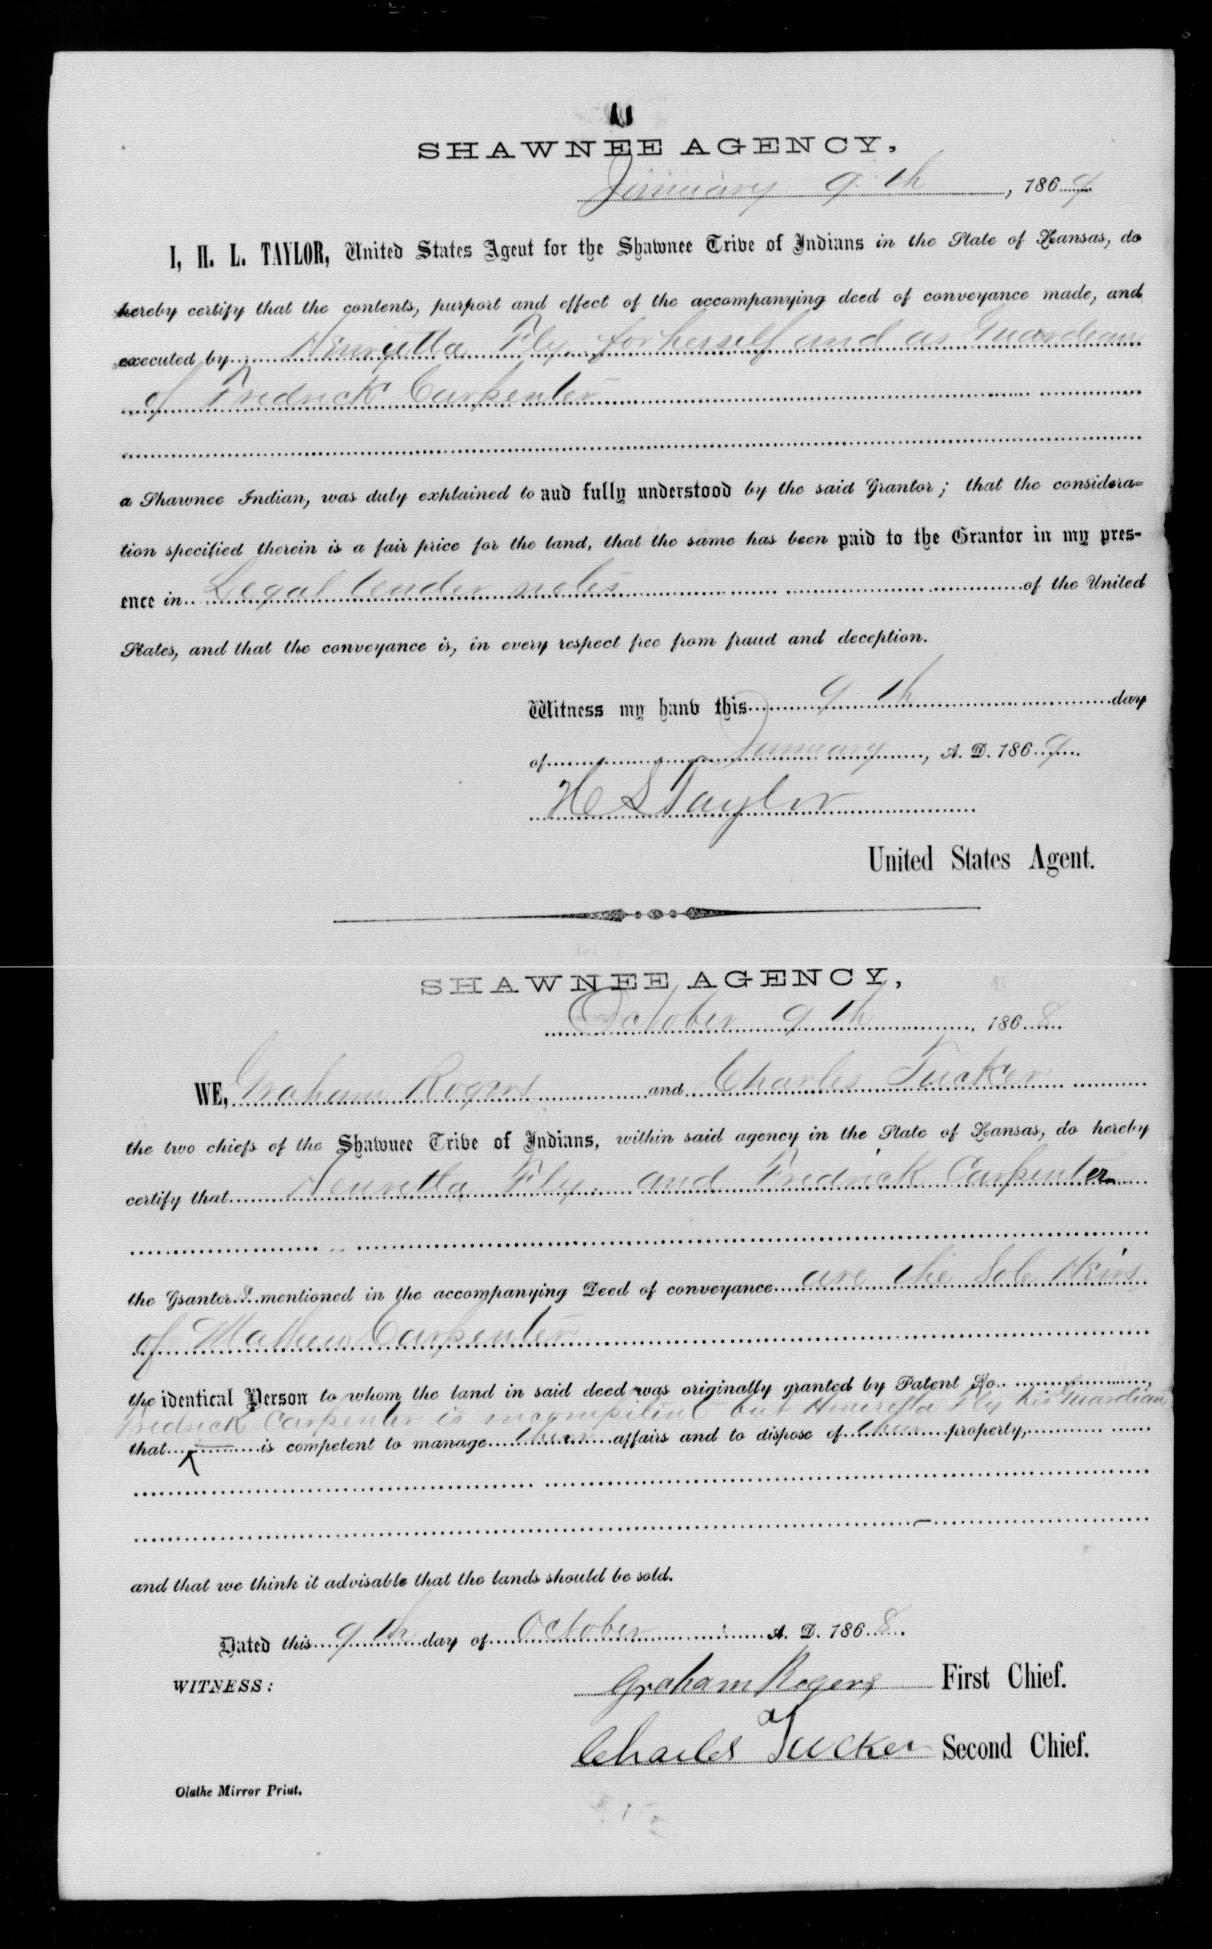 SHAWNEE AGENCY,
January 9th, 1869
I, H. L. TAYLOR, United States Agent for the Shawnee Tribe of Indians in the State of Kansas, do
hereby certify that the contents, purport and effect of the accompanying deed of conveyance made, and
executed by Henrietta Fly, for herself and as Guardian
of Fredrick Carpenter
a Shawnee Indian, was duly explained to and fully understood by the said Grantor; that the considera=
tion specified therein is a fair price for the land, that the same has been paid to the Grantor in my pres-
ence in Legal tender notes of the United
States, and that the conveyance is, in every respect free from fraud and deception.
Witness my hand this 9th day
of January, A. D. 1869
H L Taylor
United States Agent.
SHAWNEE AGENCY,
October 9th, 1868
WE, Graham Rogers and Charles Tucker
the two chiefs of the Shawnee Tribe of Indians, within said agency in the State of Kansas, do hereby
certify that Henrietta Fly. and Fredrick Carpenter
the Grantor s mentioned in the accompanying Deed of conveyance are the Sole Heirs
of Mathew Carpenter
the identical Person to whom the land in said deed was originally granted by Patent No.
Fredrick Carpenter is incompitent but Henrietta Fly his Guardian
that is competent to manage their affairs and to dispose of their property,
and that we think it advisable that the lands should be sold.
Dated this 9th day of October A. D. 1868.
WITNESS:
Graham Rogers First Chief.
Charles Tucker Second Chief.
Olathe Mirror Print.